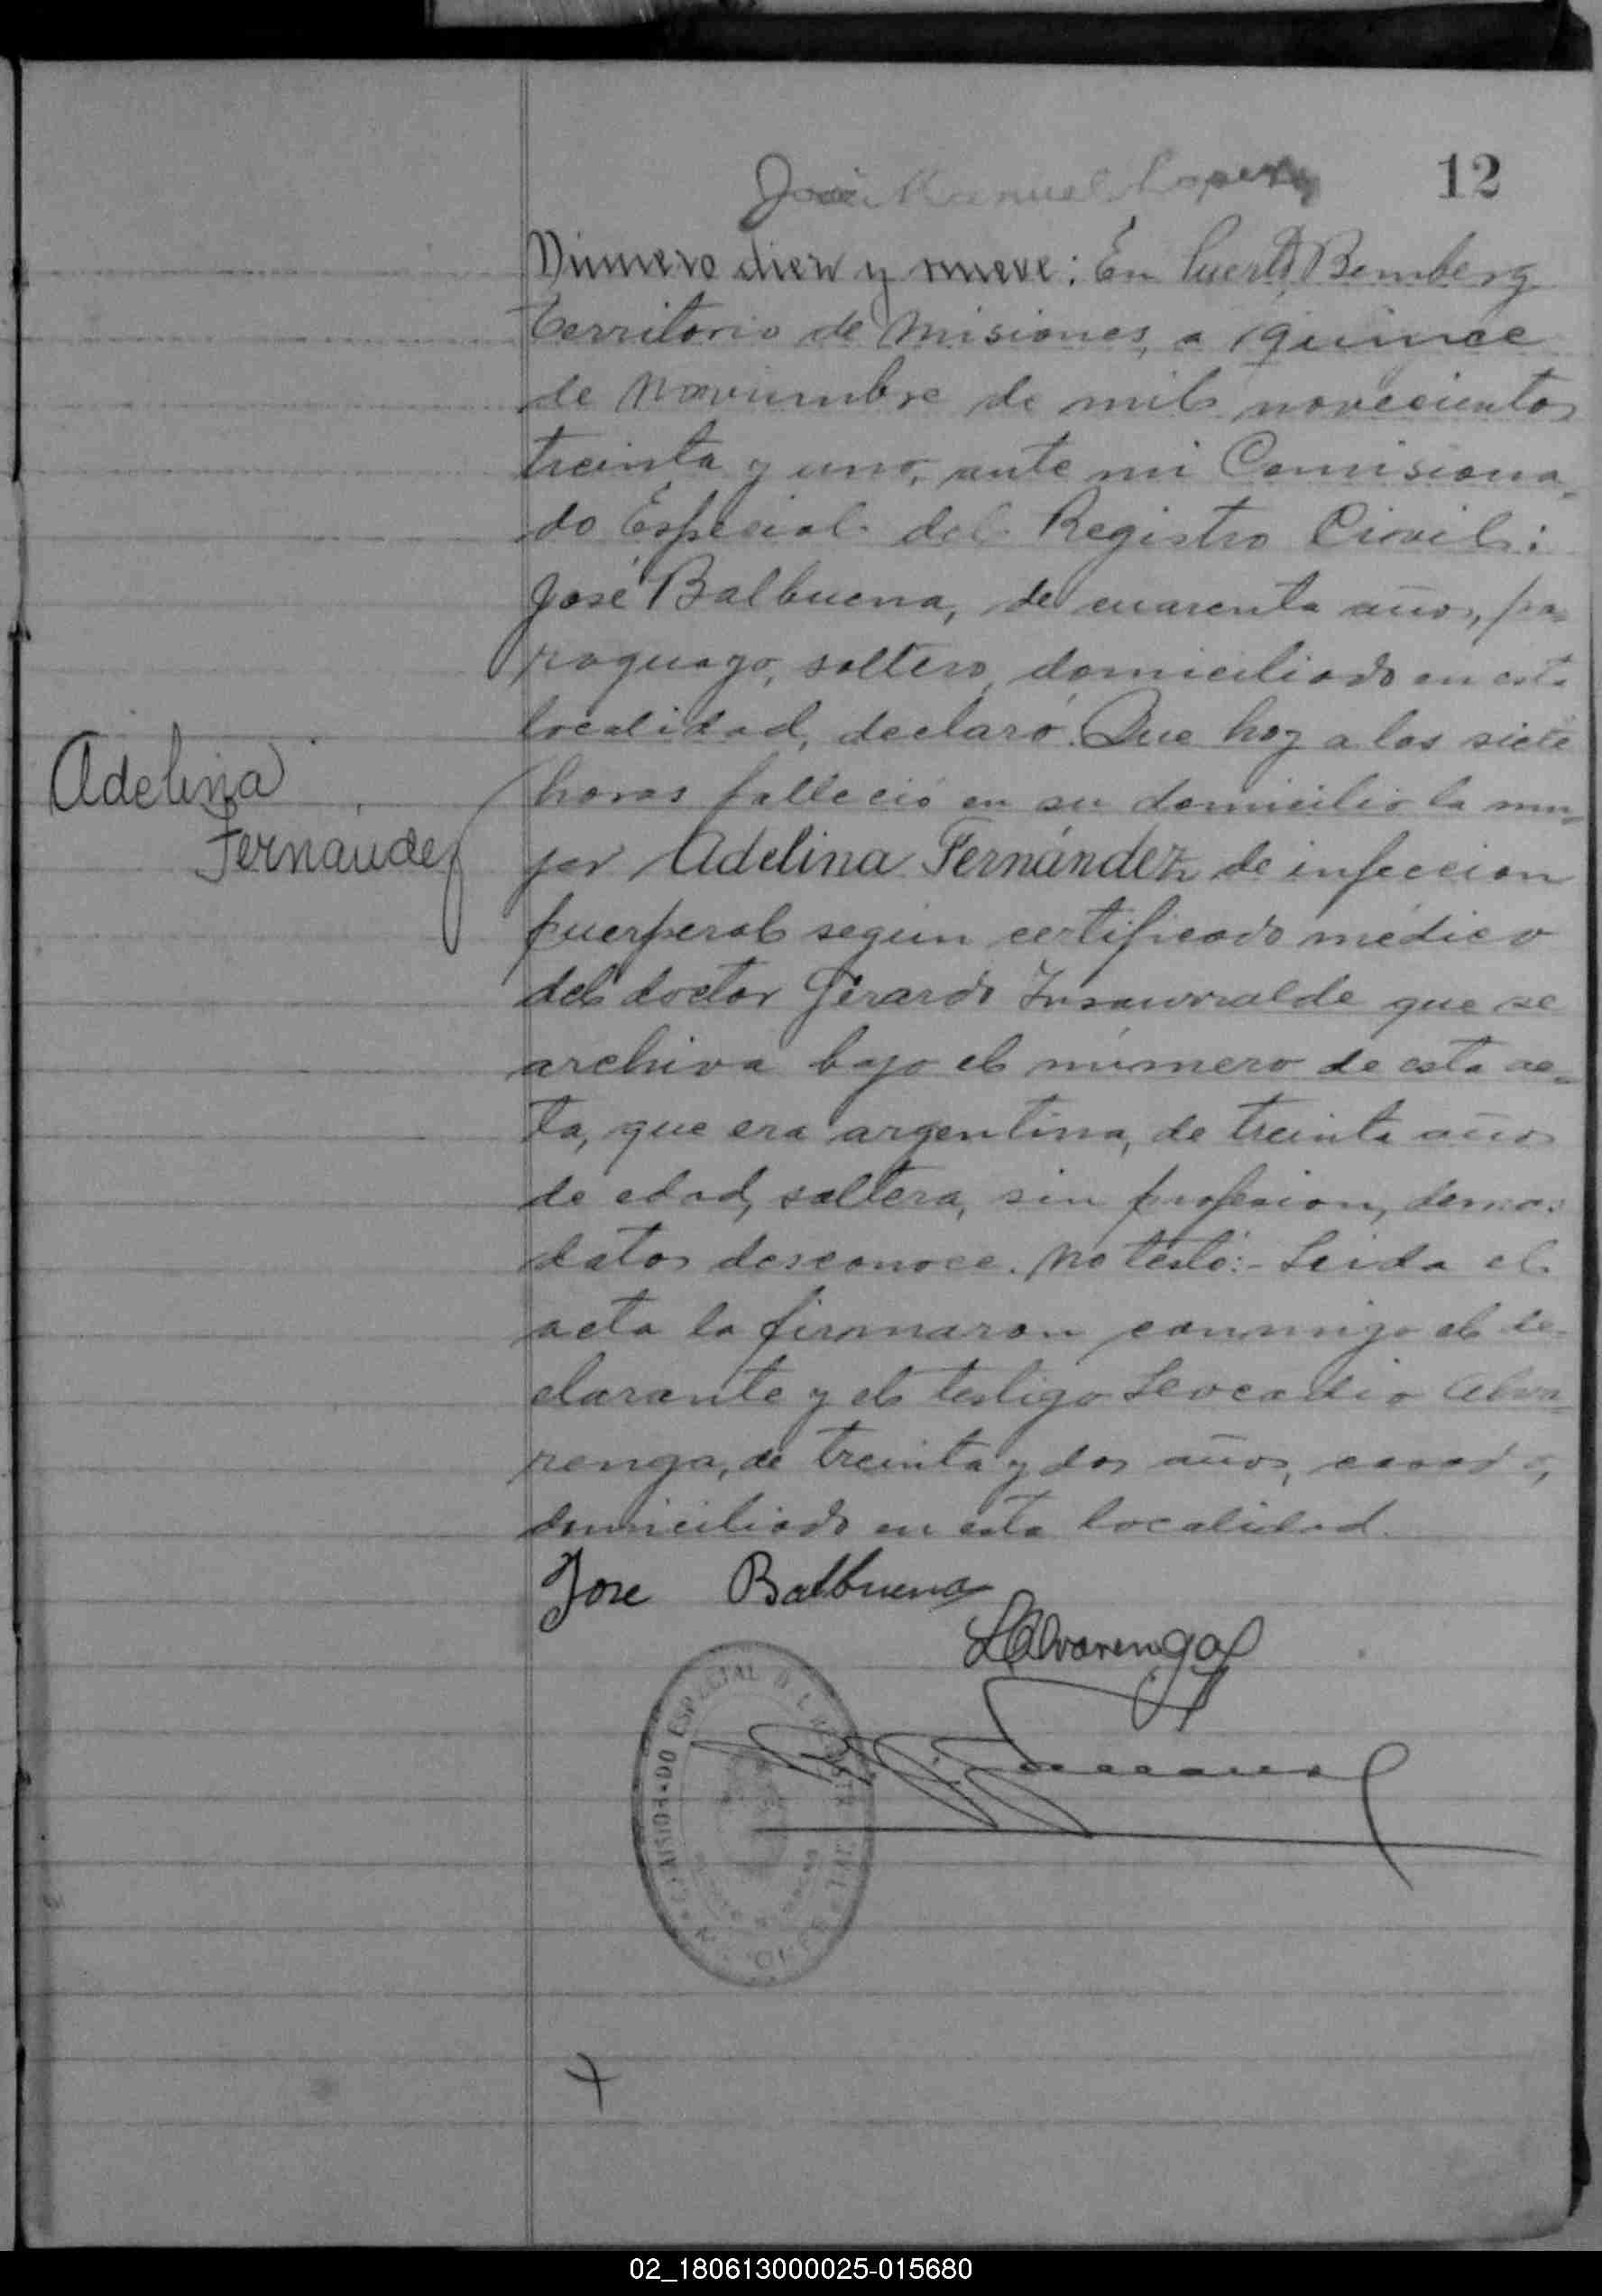 12
José Manuel Lopez
Número diez y nueve: En Puerto Bemberg
territorio de Misiones, a quince
de Noviembre de mil novecientos
treinta y uno, ante mi Comisiona-
do Especial del Registro Civil:
José Balbuena, de cuarenta años, pa-
raguayo, soltero, domiciliado en esta
localidad, declaró: Que hoy a las siete
horas falleció en su domicilio la mu-
jer Adelina Fernández de infeccion
Adelina
Fernández
puerperal según certificado médico
del doctor Gerardo Insaurralde que se
archiva bajo el número de esta ac-
ta, que era argentina, de treinta años
de edad, soltera, sin profesion, demas
datos desconoce. No testó:- Leida el
acta la firmaron conmigo el de-
clarante y el testigo Leocadio Alva-
renga, de treinta y dos años, casado,
domiciliado en esta localidad.
Jose Balbuena
LAlvarenga
COMISIONADO ESPECIAL DEL REGISTRO CIVIL
02_180613000025-015680